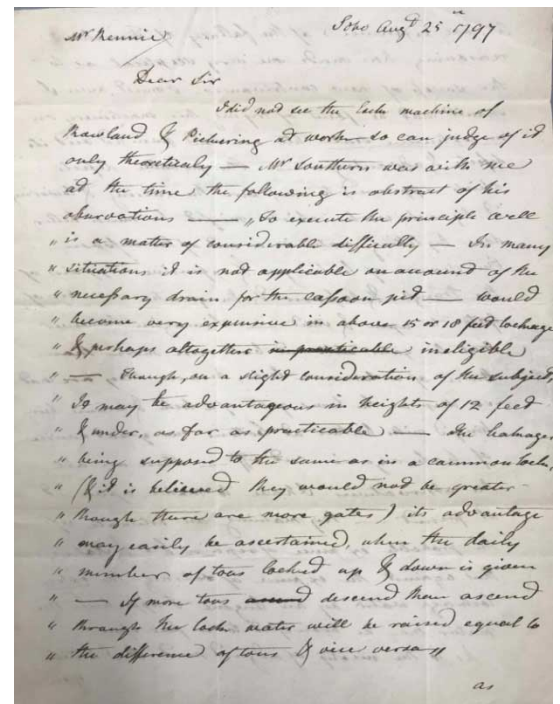 Mr Rennie Soho Augt 25th 1797
Dear Sir
I did not see the lock machine of
Rowland & Pickering at work so can judge of it
only theoreticaly — Mr Southern was with me
at the time the following is abstract of his
observations — „To execute the principle well
„ is a matter of considerable difficulty — In many
" situations it is not applicable on account of the
" necessary drain for the cassoon pit — would
" become very expensive in above 15 or 18 feet lockage
" & perhaps altogether impracticable ineligible
" — though, on a slight consideration of the subject
" It may be advantageous in heights of 12 feet
" & under, as far as practicable — the leakages
" being supposed to the same as in a common lock,
" (& it is believed they would not be greater
" though there are more gates) its advantage
" may easily be ascertained, when the daily
" number of tons locked up & down is given
" — If more tons descend than ascend
" through the lock water will be raised equal to
" the difference of tons & vice versa„
as